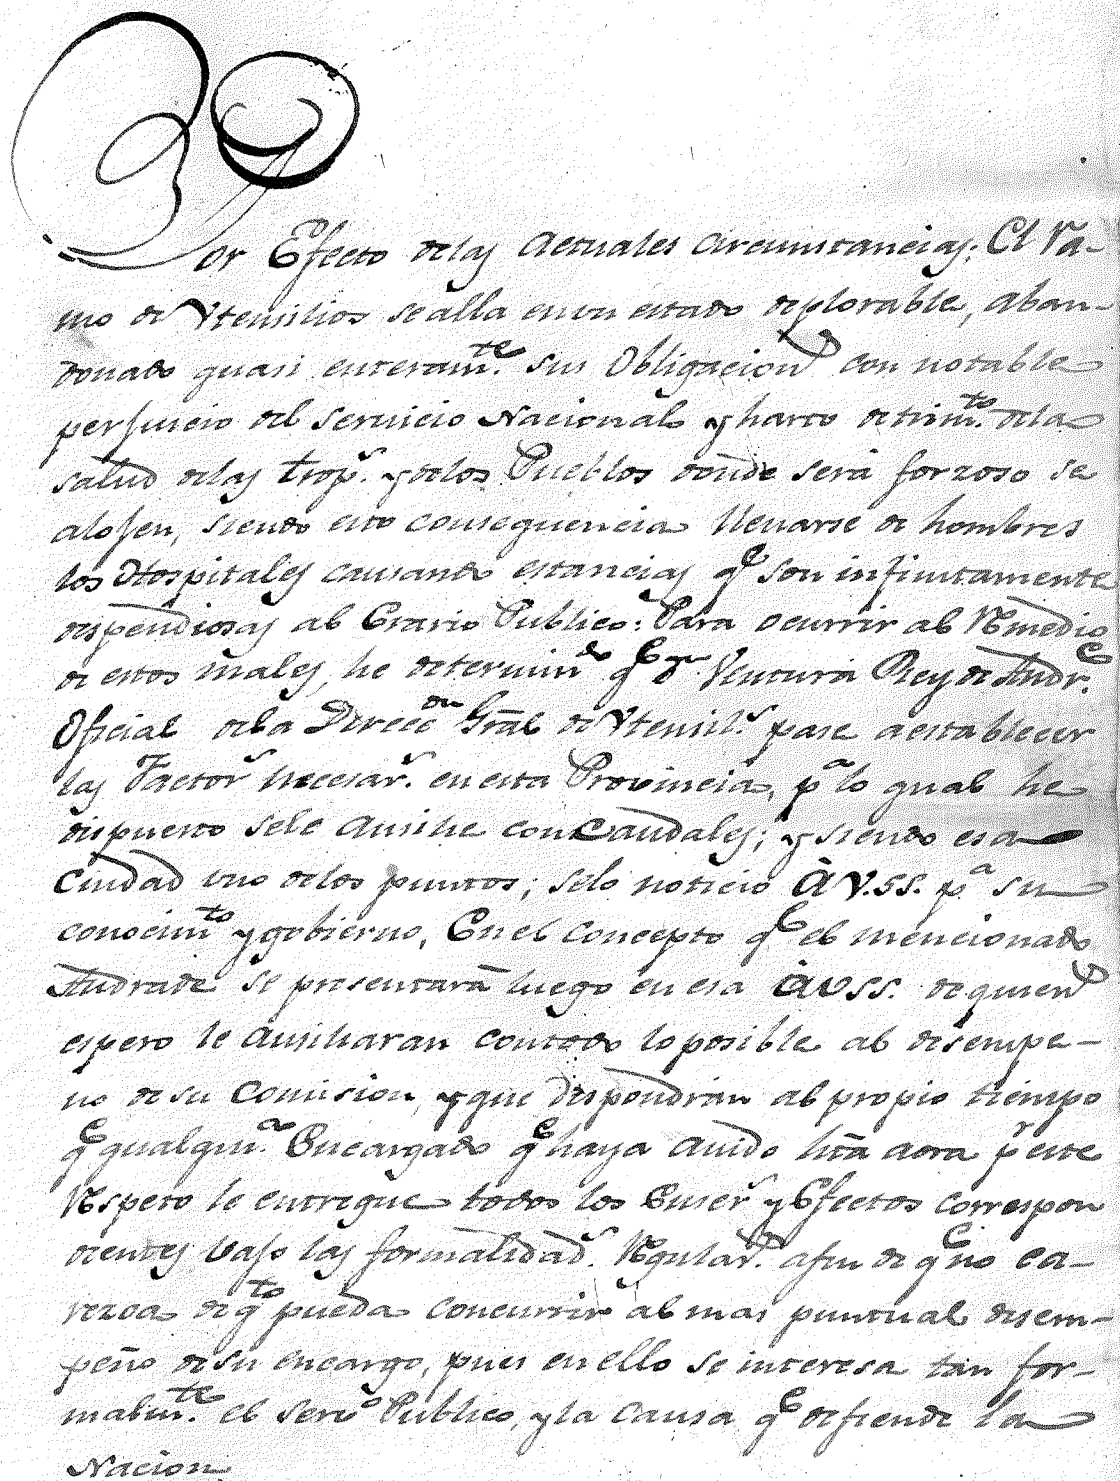 Por Efecto delas Actuales circunstancias: El Ra-
mo de Vtensilios sealla enun estado deplorable, aban-
donado quasi enteramte. sus Obligacion.s con notable
perjuicio del servicio Nacional y harto detrimto. dela
salud delas trops. y delos Pueblos donde será forzoso se
alojen, siendo esto consequencia llenarse de hombres
los Hospitales causando estancias qe son infinitamente
dispendiosas al Erario Publico: Para ocurrir al Remedio
de estos males, he determindo qe Dn Ventura Rey de Andre.
Oficial dela Direccon Gral de Vtensils. pase aestablecer
las Factors necesars. enesta Provincia, pa lo qual he
dispuesto sele Ausilie con Caudales; y siendo esa
Ciudad uno delos puntos; selo noticio À V.SS. pa su
conocimto y gobierno, En el concepto qe el mencionado
Andrade se presentará luego en esa À V SS. de quienes
espero le Ausiliaran contodo loposible al desempe-
no de su Comision, y que dispondrán al propio tiempo
qe qualqura. Encargado qe haya avido hta aora pr este
Respeto le entregue todos los Enses y Efectos correspon
dientes bajo las formalidads. Regulars. afin de qe no ca-
rezca de qto pueda concurrir al mas puntual desem-
peño desu encargo, pues en ello se interesa tan for-
malmte. el servo Publico, y la causa qe defiende la
Nacion